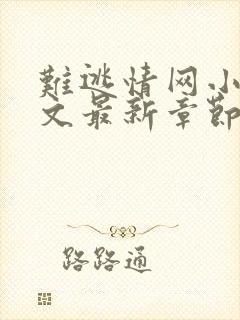 難逃情网小
文最新章節
路路通